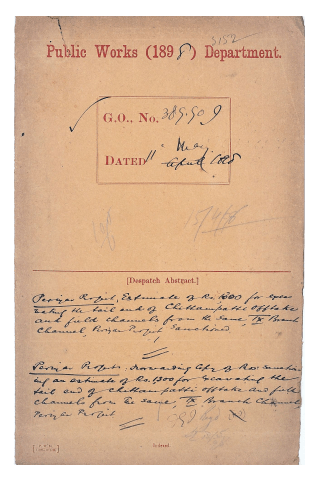 3152
Public Works (1898) Department.
G.O., No. 389-90 J
DATED 11 May 1898
[Despatch Abstract.]
Periyar Project, Estimate of Rs. 1300 for exca
vating the tail end of Chettanpatti offtake
and field channels from the same, IX Branch
Channel, Periyar Project Sanctioned
Periyar Project, Forwarding copy of
an estimate of Rs. 1300 for excavating the
tail end of Chettanpatti offtake and field
channels from the same, IX Branch Channel,
Periyar Project
Indexed